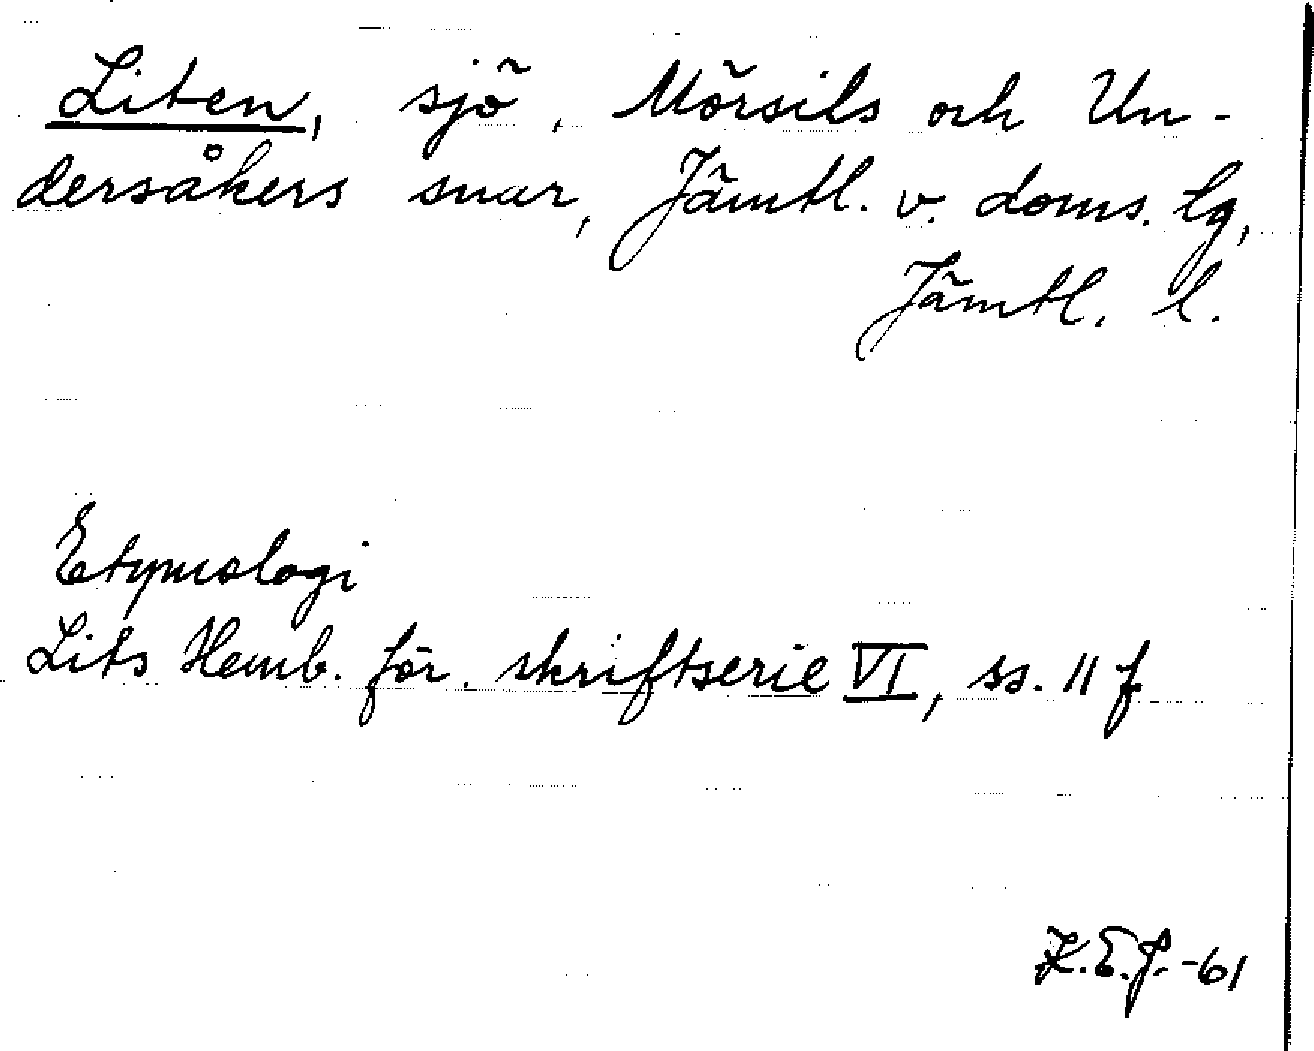 Liten, sjö, Mörsils och Un-
dersåkers snar, Jämtl. v. doms. lg,
Jämtl. l.
Etymologi
Lits Hemb. för. skriftserie VI, ss. 11 f
K.E.J. -61